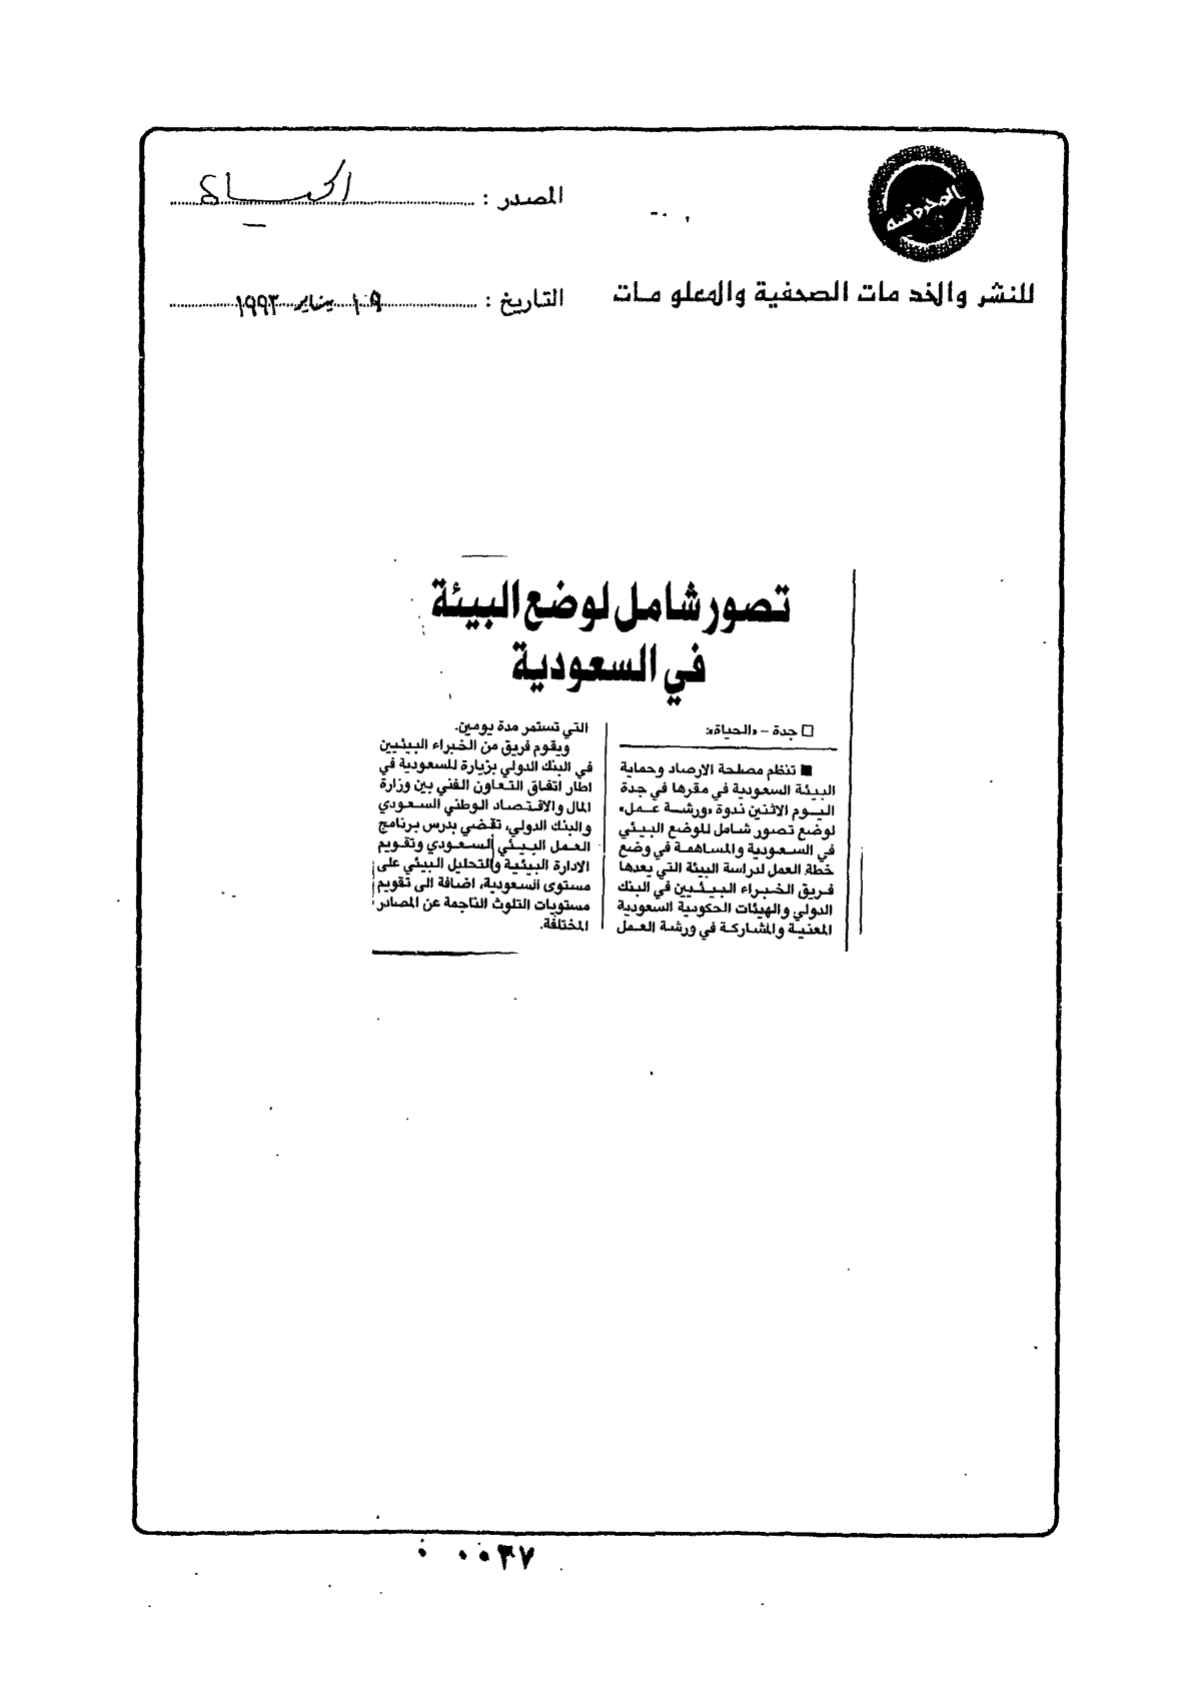 المحروسة
المصدر : الحياة
للنشر والخدمات الصحفية والمعلومات
التاريخ : ١٩ يناير ١٩٩٣
تصور شامل لوضع البيئة
في السعودية
□ جدة – «الحياة»:
■ تنظم مصلحة الارصاد وحماية
البيئة السعودية في مقرها في جدة
اليوم الاثنين ندوة «ورشة عمل»
لوضع تصور شامل للوضع البيئي
في السعودية والمساهمة في وضع
خطة العمل لدراسة البيئة التي يعدها
فريق الخبراء البيئيين في البنك
الدولي والهيئات الحكومية السعودية
المعنية والمشاركة في ورشة العمل
التي تستمر مدة يومين.
ويقوم فريق من الخبراء البيئيين
في البنك الدولي بزيارة للسعودية في
اطار اتفاق التعاون الفني بين وزارة
المال والاقتصاد الوطني السعودي
والبنك الدولي، تقضي بدرس برنامج
العمل البيئي السعودي وتقويم
الادارة البيئية والتحليل البيئي على
مستوى السعودية، اضافة الى تقويم
مستويات التلوث الناجمة عن المصادر
المختلفة.